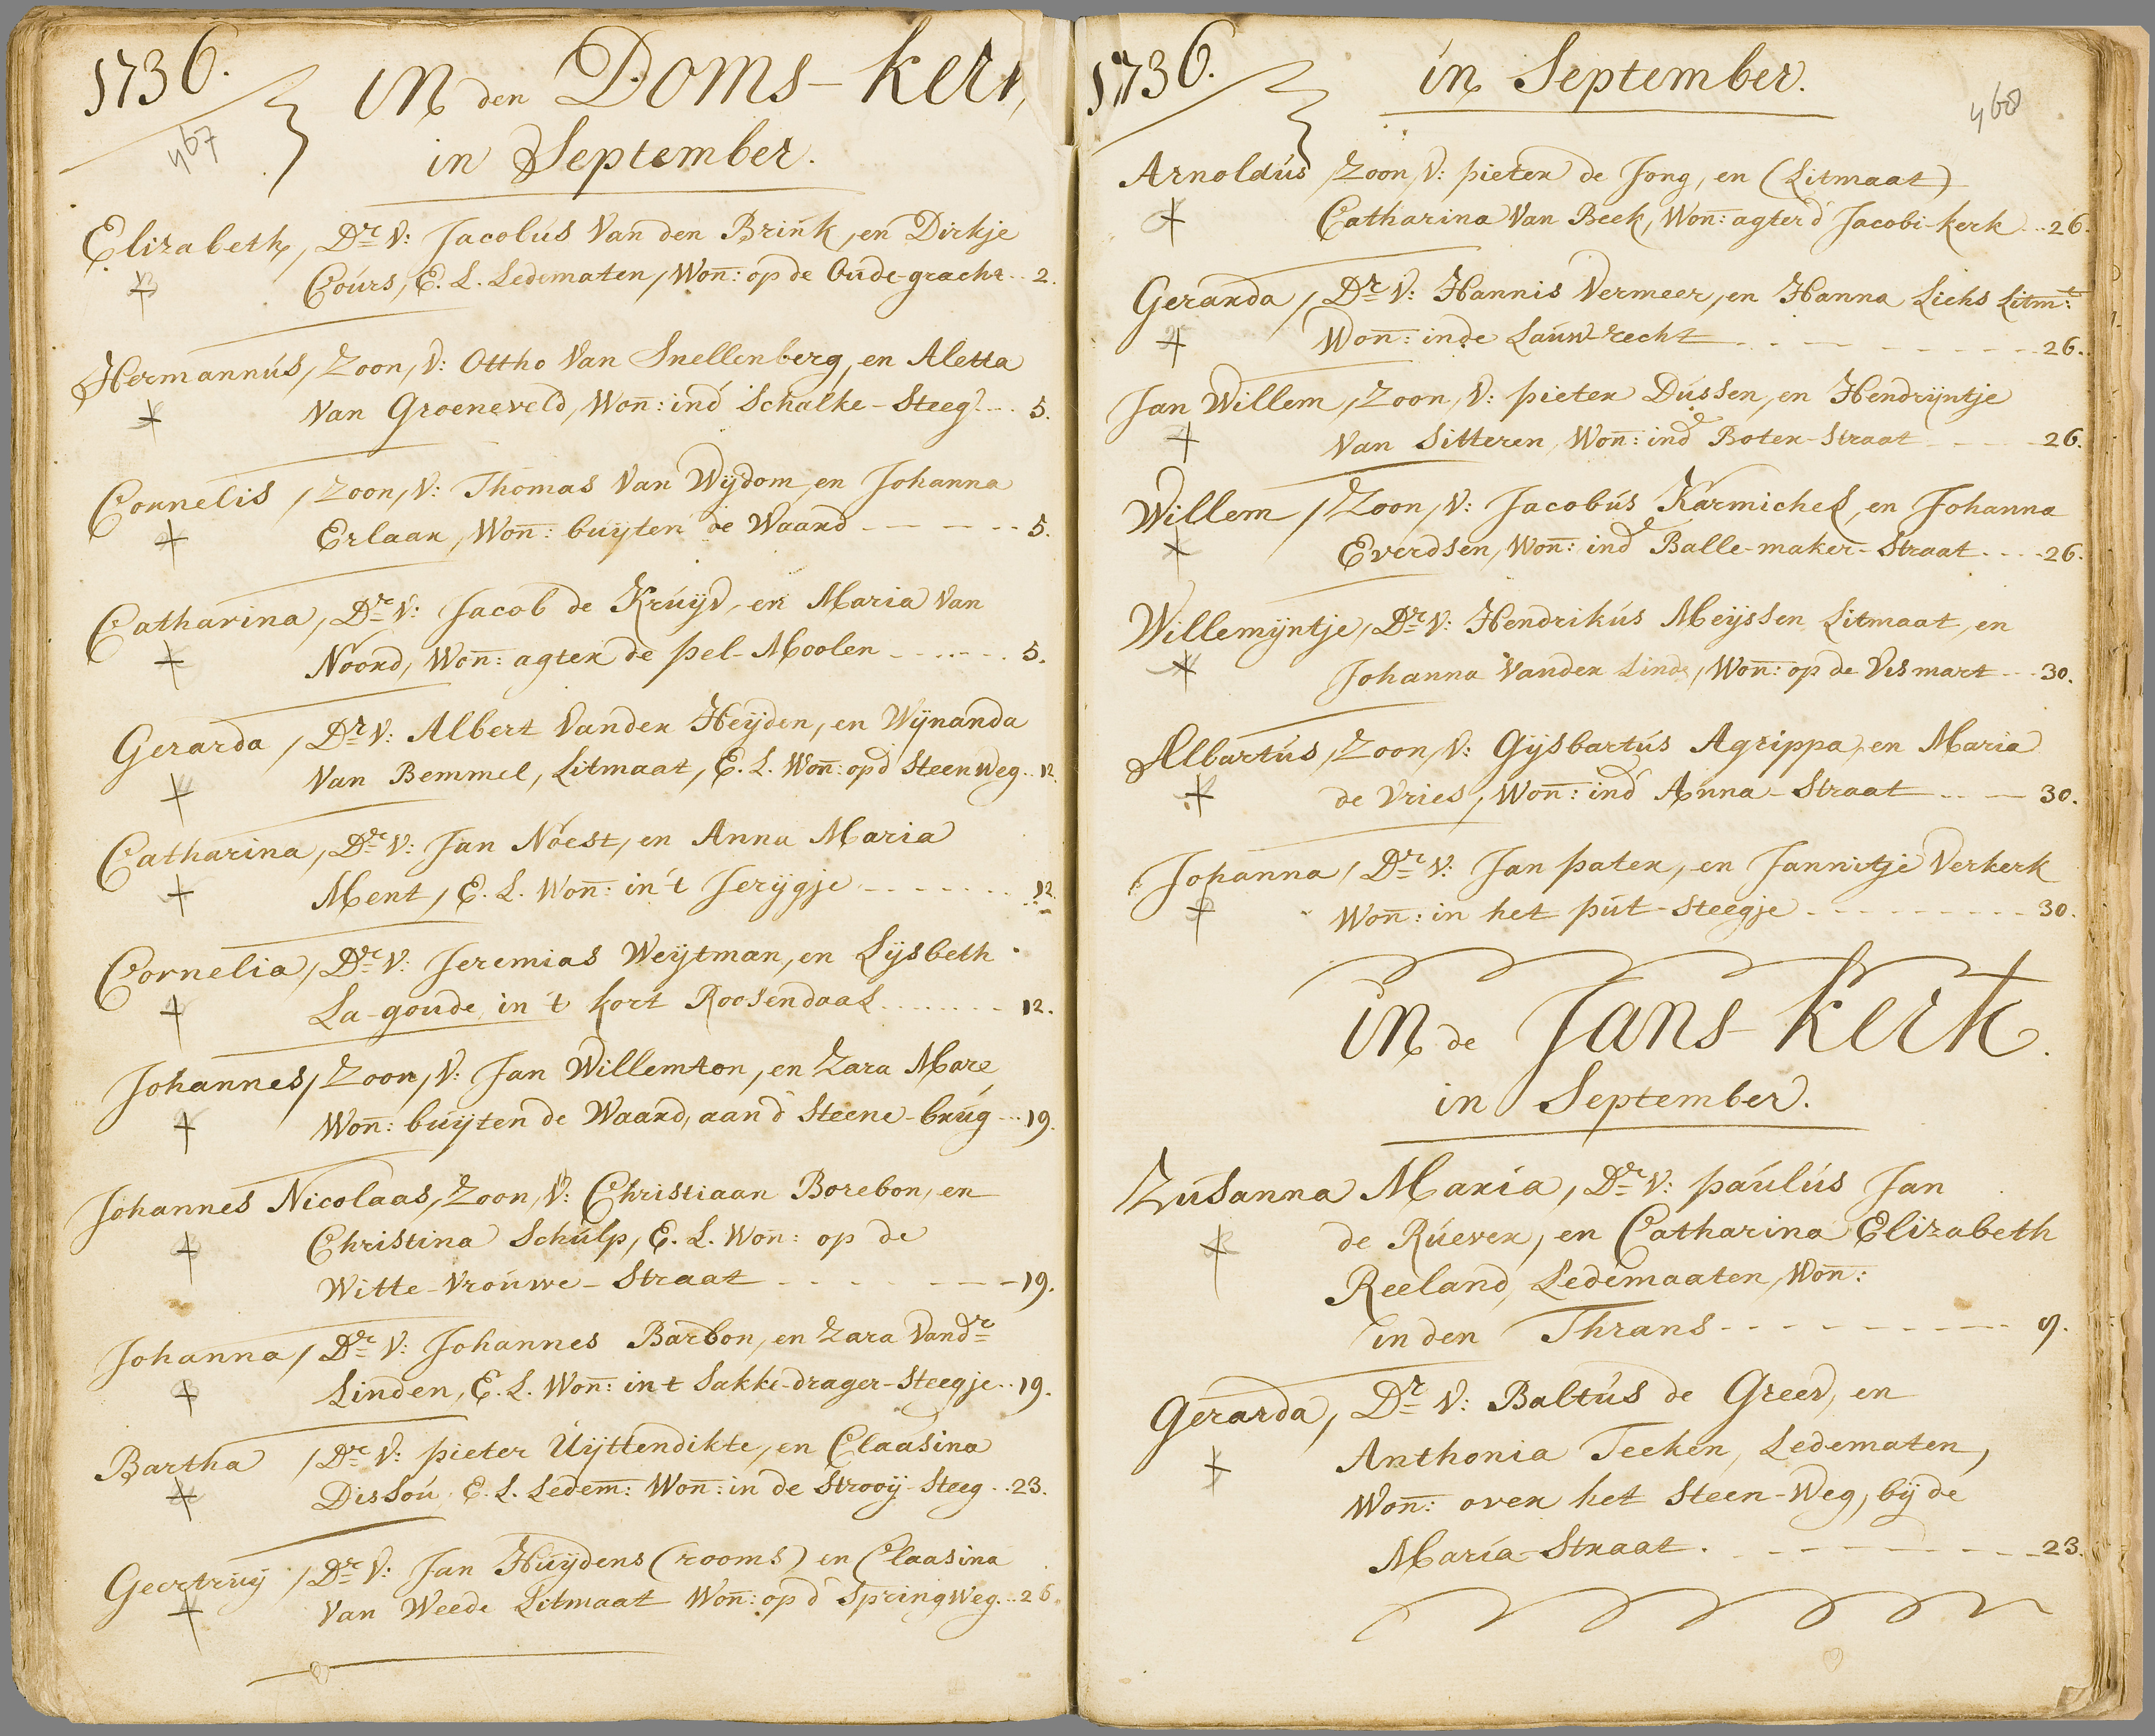 1736.
467
in den Doms-kerk
in September.
Elizabeth, Dr V: Jacobus Van den Brink, en Dirkje
Cours, E. L. Ledematen, Won: op de Oude-gracht .. 2.
Hermannús, Zoon, V: Ottho Van Snellenberg, en Aletta
Van Groeneveld, Won: ind' Schalke-Steeg ... 5.
Cornelis, Zoon, V: Thomas Van Wijdom, en Johanna
Erlaar, Won: buijten de Waard ----- 5.
Catharina, Dr V: Jacob de Kruijv, en Maria Van
Noord, Won: agter de pel-Moolen ------ 5.
Gerarda, Dr V: Albert Vander Heijden, en Wijnanda
Van Bemmel, Litmaat, E. L. Won: opd' Steenweg .. 12.
Catharina, Dr V: Jan Noest, en Anna Maria
Ment, E. L. Won: in 't Jerijgje ------- 12.
Cornelia, Dr V: Jeremias Weijtman, en Lijsbeth
La-goude, in 't kort Roosendaal ------- 12.
Johannes, Zoon, V: Jan Willemton, en Zara Mare,
Won: buijten de Waard, aan d' Steene-brúg ... 19.
Johannes Nicolaas, Zoon, V: Christiaan Borebon, en
Christina Schúlp, E. L. Won: op de
Witte-Vrouwe-Straat ------- 19.
Johanna, Dr V: Johannes Barbon, en Zara Vandr
Linden, E. L. Won: in t Sakke-drager-Steegje .. 19.
Bartha, Dr V: pieter Uijttendikte, en Claasina
Dissoú, E. L. Ledem: Won: in de Strooij-Steeg .. 23.
Geertruij, Dr V: Jan Húijdens (rooms) en Claasina
Van Weede Litmaat Won: op d' SpringWeg ... 26.
1736.
in September.
468
Arnoldús, Zoon, V: pieter de Jong, en (Litmaat)
Catharina Van Beek, Won: agter d' Jacobi-kerk ... 26.
Gerarda, Dr V: Hannis Vermeer, en Hanna Liehs Litmt:
Won: in de Lauwrecht ------- 26.
Jan Willem, Zoon, V: pieter Dússen, en Hendrijntje
Van Sitteren, Won: inde Boter-Straat ---- 26.
Willem, Zoon, V: Jacobús Karmichel, en Johanna
Everdsen, Won: inde Balle-maker-Straat ---- 26.
Willemijntje, Dr V: Hendrikús Meijssen Litmaat, en
Johanna Vander Linde, Won: op de Vismart ... 30.
Albartús, Zoon, V: Gijsbartús Agrippa, en Maria
de Vries, Won: ind' Anna-Straat ---- 30.
Johanna, Dr V: Jan pater, en Jannitje Verkerk
Won: in het pút-steegje --------- 30.
in de Jans-kerk.
in September.
Zúsanna Maria, Dr V: paúlús Jan
de Rúever, en Catharina Elizabeth
Reeland, Ledemaaten, Won:
in den Thrans -------- 9.
Gerarda, Dr V: Baltús de Greev, en
Anthonia Teeken, Ledematen,
Won: over het Steen-Weg, bij de
Maria-Straat. ------- 23.